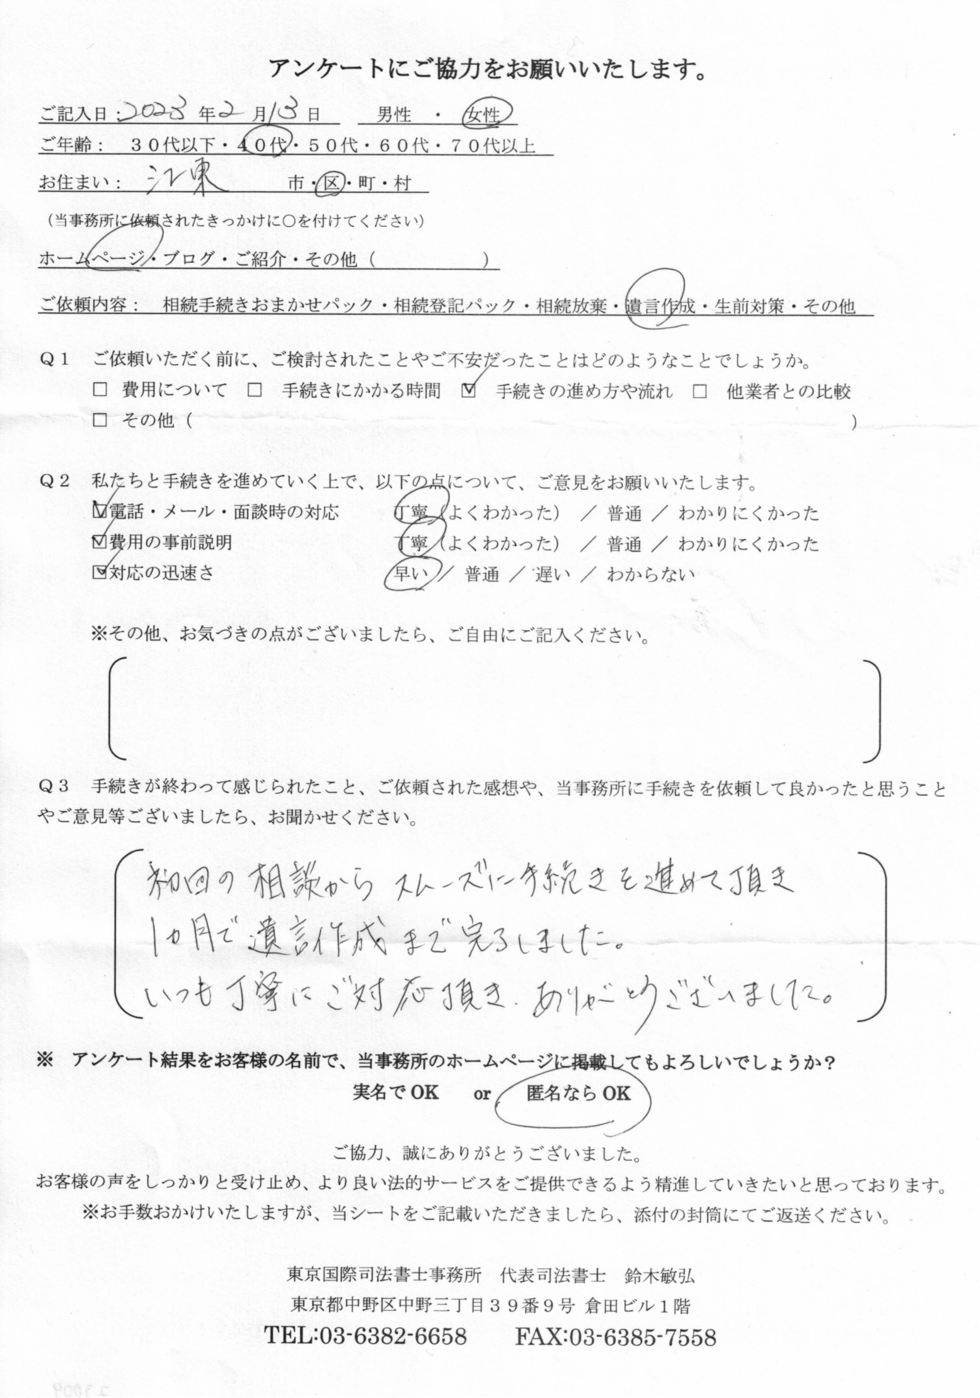 アンケートにご協力をお願いいたします。
ご記入日：2023 年 2 月 13 日　男性 ・ 女性
ご年齢： ３０代以下・４０代・５０代・６０代・７０代以上
お住まい： 江東　市・区・町・村
（当事務所に依頼されたきっかけに○を付けてください）
ホームページ・ブログ・ご紹介・その他（　　　　　　）
ご依頼内容： 相続手続きおまかせパック・相続登記パック・相続放棄・遺言作成・生前対策・その他
Ｑ１　ご依頼いただく前に、ご検討されたことやご不安だったことはどのようなことでしょうか。
□ 費用について　□ 手続きにかかる時間　☑ 手続きの進め方や流れ　□ 他業者との比較
□ その他（　　　　　　）
Ｑ２　私たちと手続きを進めていく上で、以下の点について、ご意見をお願いいたします。
☑電話・メール・面談時の対応　丁寧（よくわかった） ／ 普通 ／ わかりにくかった
☑費用の事前説明　丁寧（よくわかった） ／ 普通 ／ わかりにくかった
☑対応の迅速さ　早い ／ 普通 ／ 遅い ／ わからない
※その他、お気づきの点がございましたら、ご自由にご記入ください。
Ｑ３　手続きが終わって感じられたこと、ご依頼された感想や、当事務所に手続きを依頼して良かったと思うこと
やご意見等ございましたら、お聞かせください。
初回の相談からスムーズに手続きを進めて頂き
1ヵ月で遺言作成まで完了しました。
いつも丁寧にご対応頂き、ありがとうございました。
※　アンケート結果をお客様の名前で、当事務所のホームページに掲載してもよろしいでしょうか？
実名でOK　or　匿名ならOK
ご協力、誠にありがとうございました。
お客様の声をしっかりと受け止め、より良い法的サービスをご提供できるよう精進していきたいと思っております。
※お手数おかけいたしますが、当シートをご記載いただきましたら、添付の封筒にてご返送ください。
東京国際司法書士事務所　代表司法書士　鈴木敏弘
東京都中野区中野三丁目３９番９号 倉田ビル１階
TEL:03-6382-6658　FAX:03-6385-7558